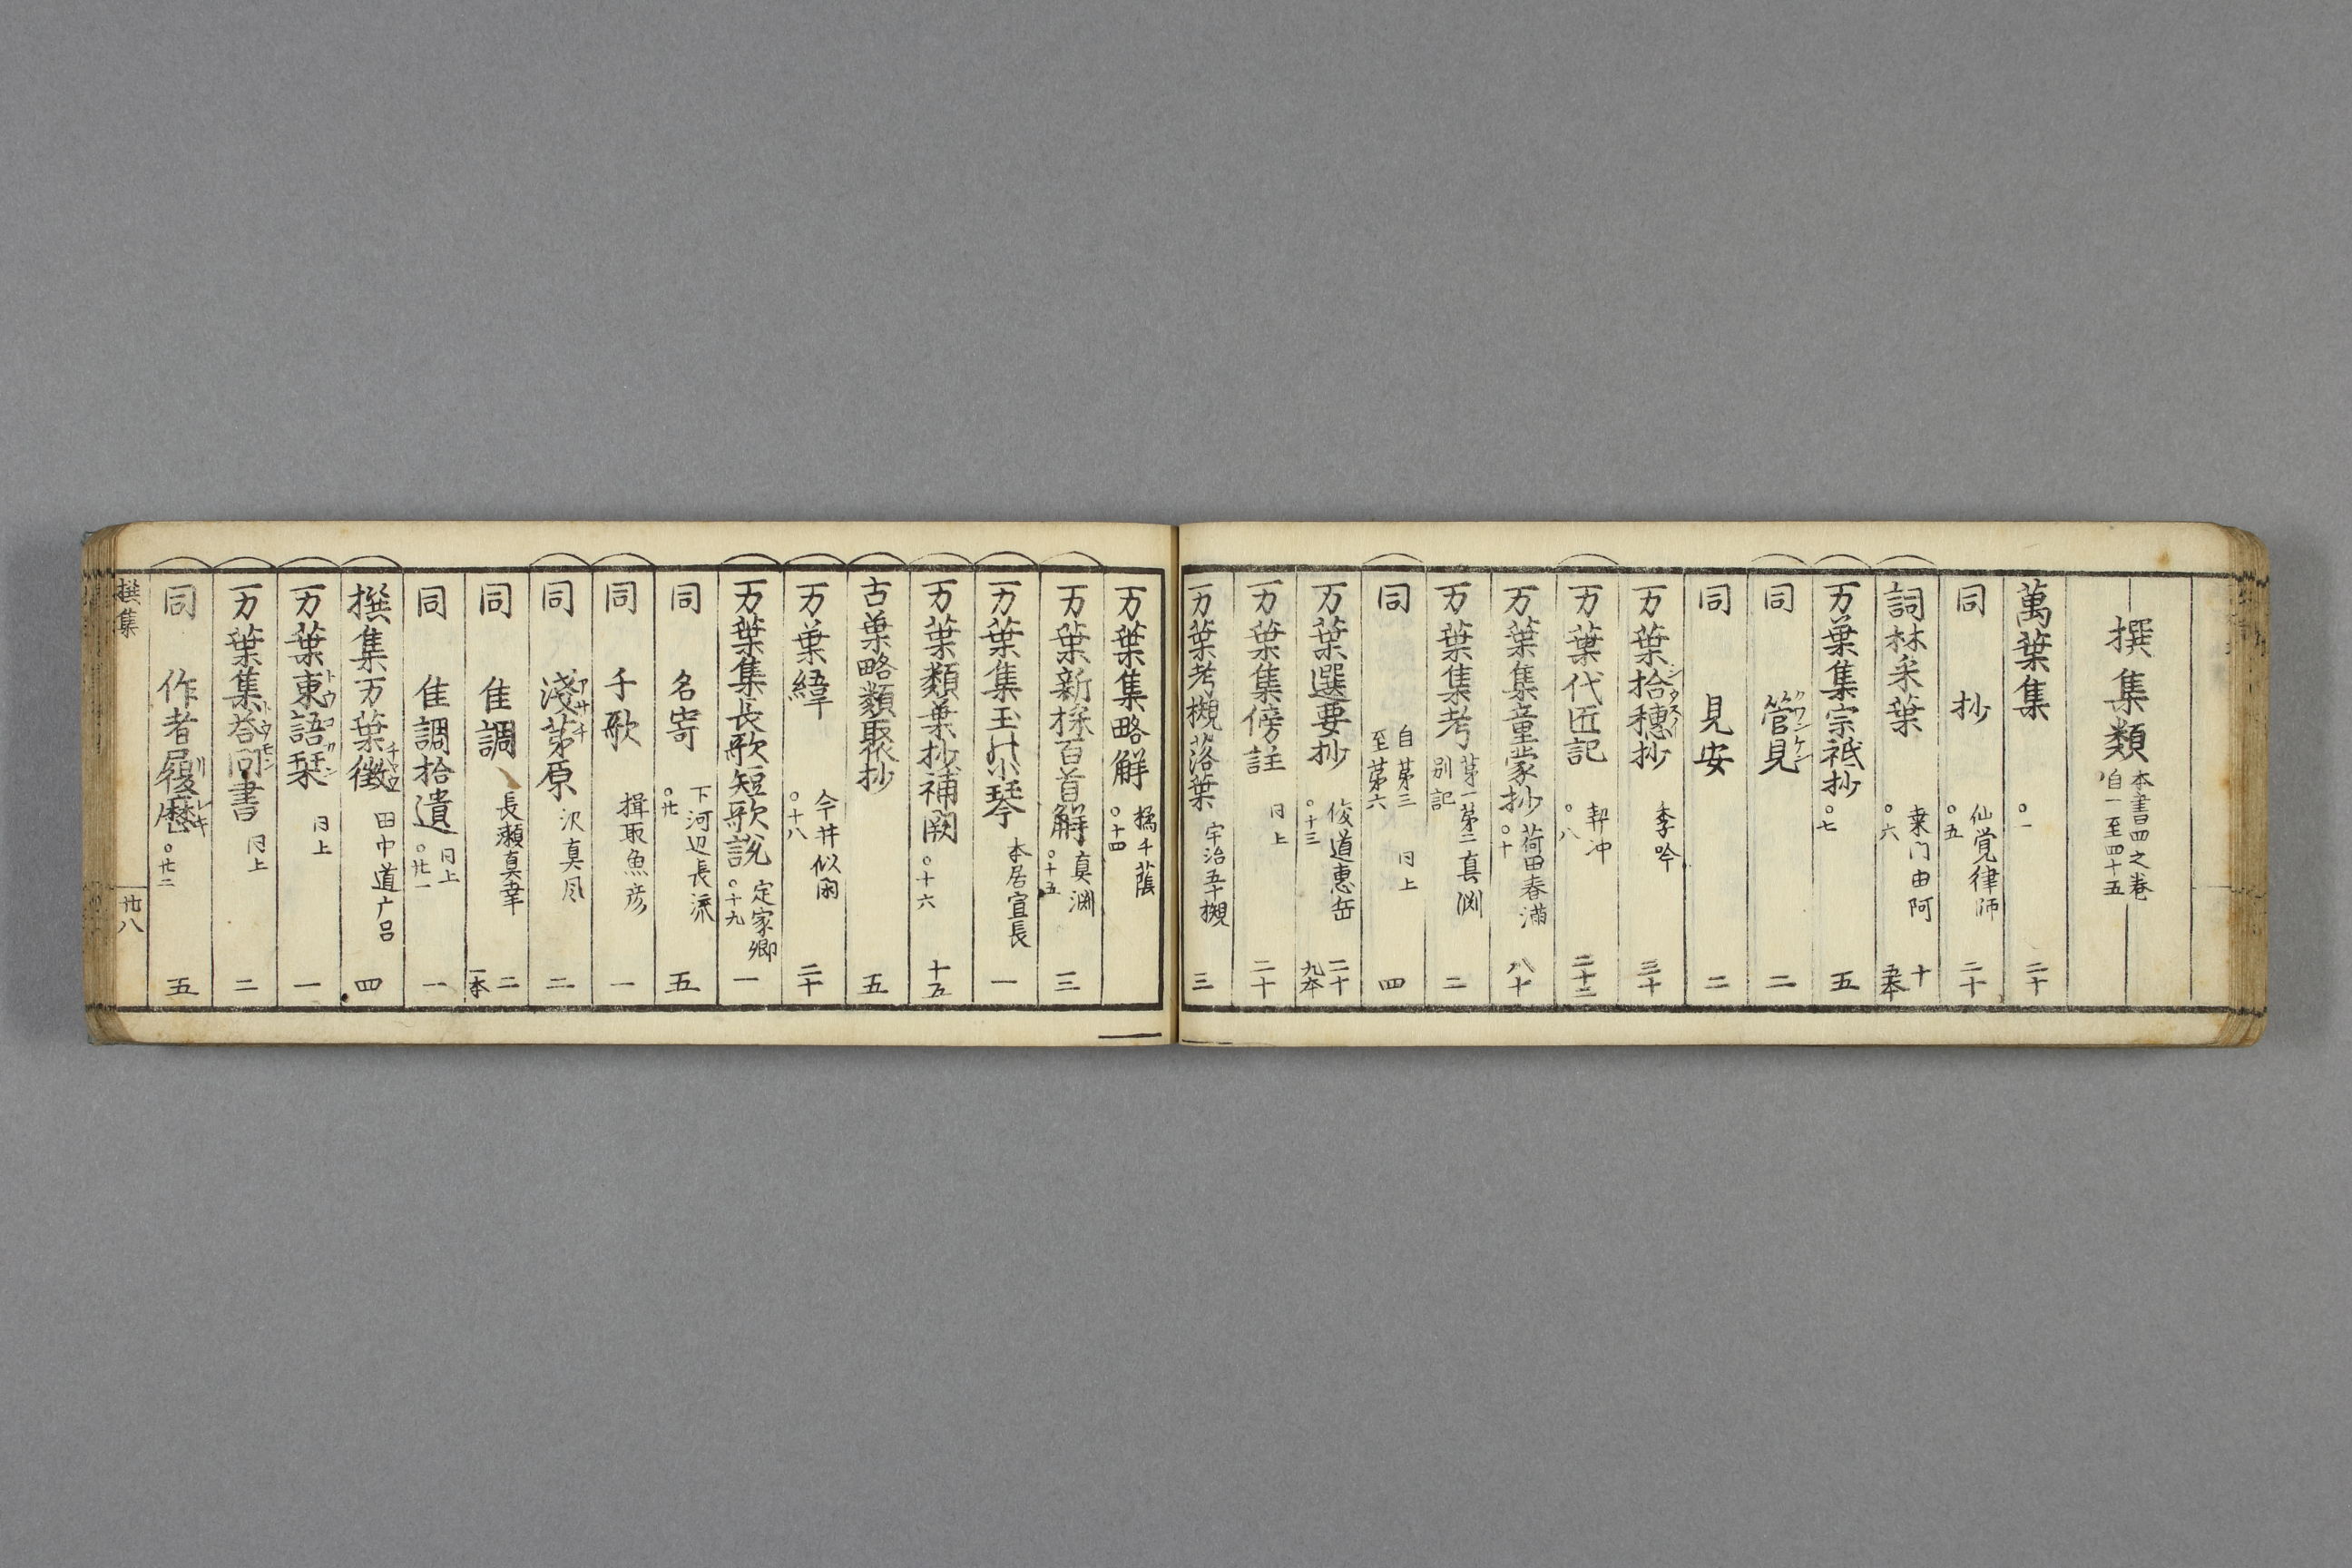 撰集類 本書四之巻 自一至四十五
萬葉集 ○一 二十
同 抄 仙覚律師 ○五 二十
詞林采葉 桒门由阿 ○六 十 五本
万葉集宗祇抄 ○七 五
同 管見 クワンケン 二
同 見安 二
万葉拾穗抄 シウスイ 季吟 三十
万葉代匠記 契冲 ○八 二十二
万葉集童蒙抄 荷田春満 ○十 八十
万葉集考 第一第二 別記 真渕 二
同 自第三 至第六 同上 四
万葉選要抄 俊道惠岳 ○十三 二十 九本
万葉集傍註 同上 二十
万葉考槻落葉 宇治五十槻 三
万葉集略觧 橘千蔭 ○十四
万葉新採百首觧 真渕 ○十五 三
万葉集玉の小琴 本居宣長 一
万葉類葉抄補闕 ○十六 十五
古葉略類聚抄 五
万葉緯 今井似閑 ○十八 二十
万葉集長歌短歌説 定家卿 ○十九 一
同 名寄 下河辺長流 ○廿 五
同 千歌 揖取魚彦 一
同 淺茅原 アサチ 沢真風 二
同 佳調 長瀬真幸 二 一本
同 佳調拾遺 同上 ○廿一 一
撰集万葉徴 チヨウ 田中道广吕 四
万葉東語栞 トウゴカン 同上 一
万葉集荅问書 トウモン 同上 二
同 作者履歴 リレキ ○廿二 五
撰集 廿八